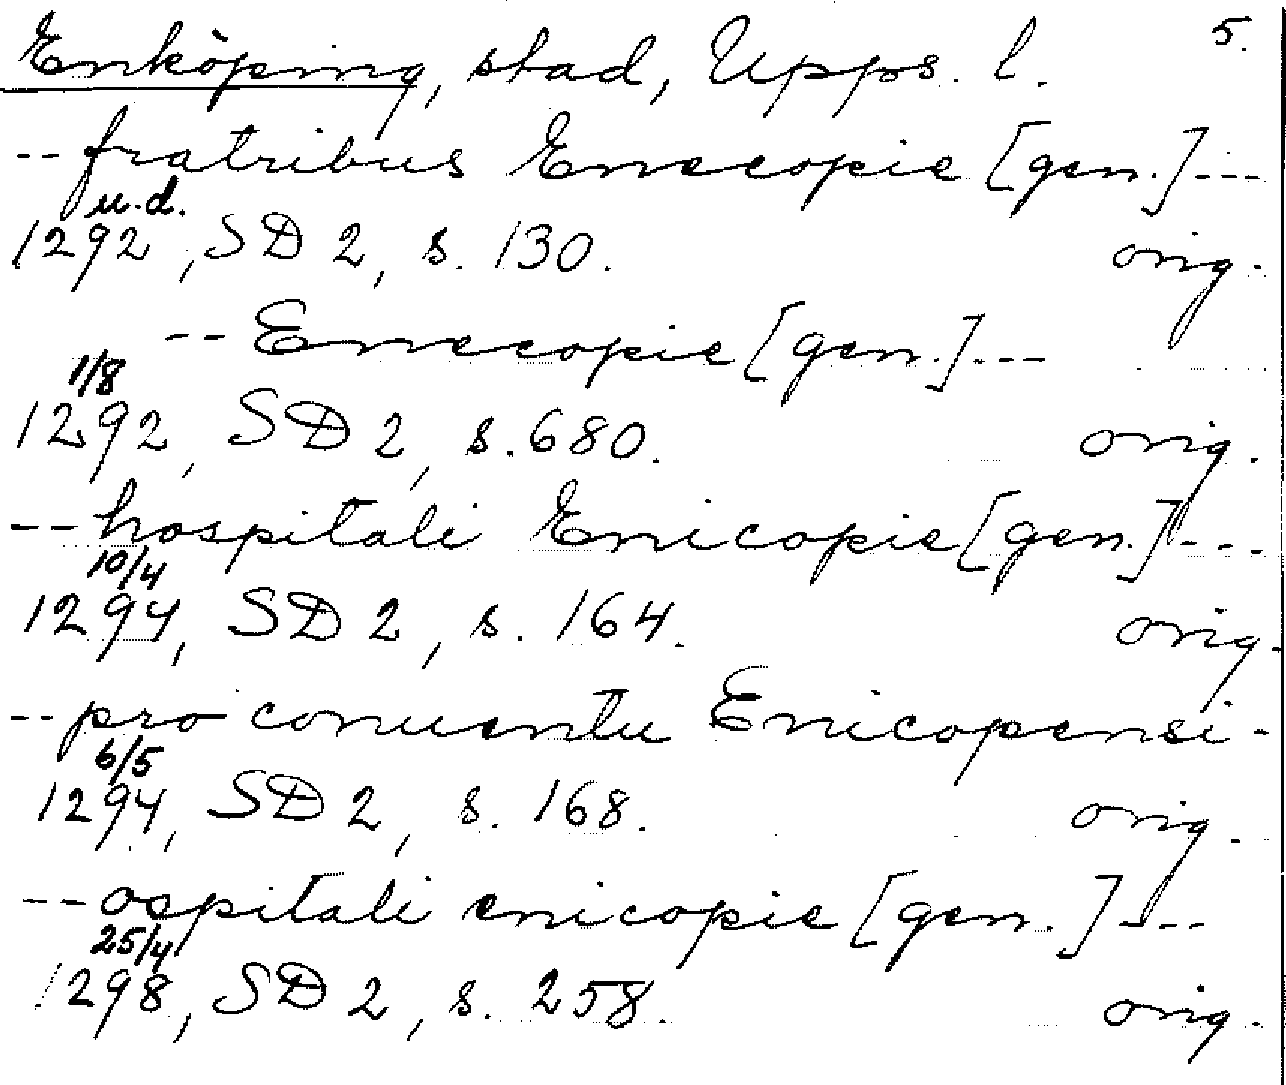 Enköping, stad, Upps. l. 5.
-- fratribus Enecopie [gen.] ---
u.d.
1292, SD 2, s. 130. orig.
-- Enecopie [gen.] ---
1/8
1292, SD 2, s. 680. orig.
-- hospitali Enicopie [gen.] ---
10/4
1294, SD 2, s. 164. orig.
-- pro conuentu Enicopensi -
6/5
1294, SD 2, s. 168. orig.
-- ospitali enicopie [gen.] ---
25/4
1298, SD 2, s. 258. orig.